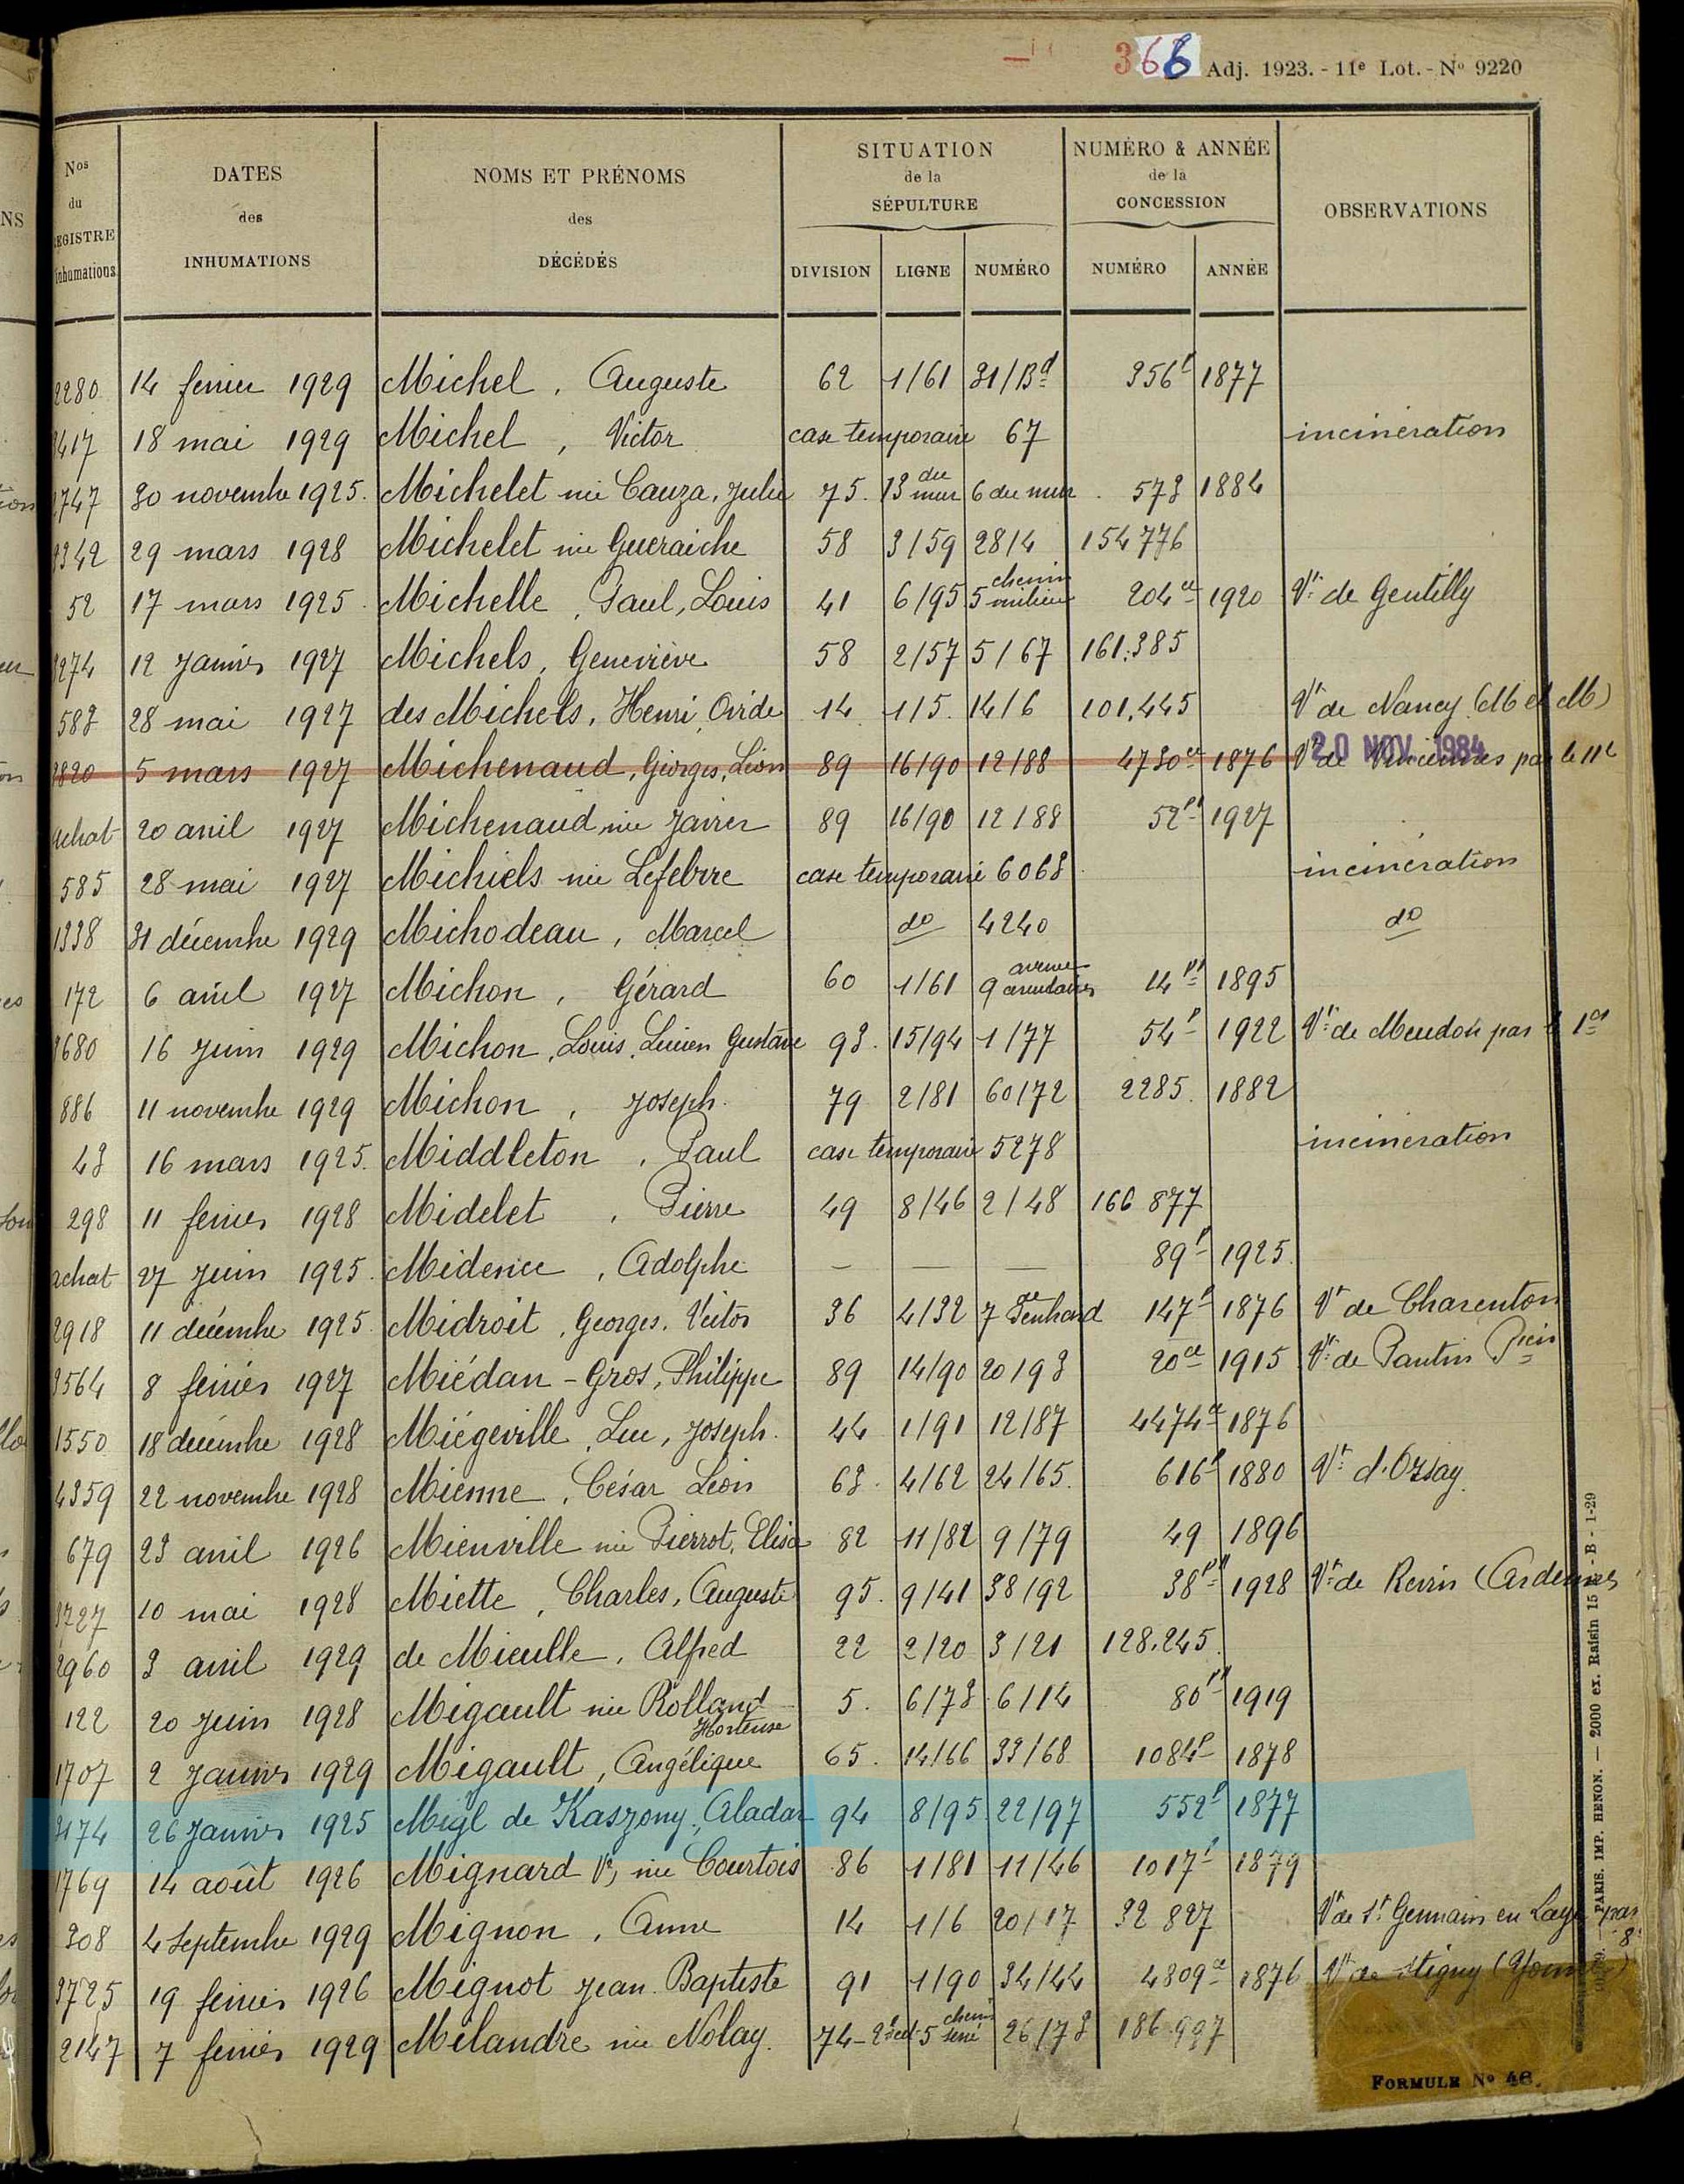 366 Adj. 1923. - 11e Lot. - No 9220
Nos du REGISTRE Inhumations
DATES des INHUMATIONS
NOMS ET PRÉNOMS des DÉCÉDÉS
SITUATION de la SÉPULTURE
DIVISION LIGNE NUMÉRO
NUMÉRO & ANNÉE de la CONCESSION
NUMÉRO ANNÉE
OBSERVATIONS
2280 14 fevrier 1929 Michel, Auguste 62 1/61 31/Bd 356p 1877
2417 18 mai 1929 Michel, Victor case temporaire 67 incinération
1747 30 novembre 1925 Michelet née Cauza, Julie 75 13 du mur 6 du mur 573 1884
3342 29 mars 1928 Michelet née Gueraiche 58 3/59 28/4 154776
52 17 mars 1925 Michelle, Paul, Louis 41 6/95 5 chemin milieu 204ce 1920 Vt de Gentilly
3274 12 Janvier 1927 Michels, Geneviève 58 2/57 5/67 161.385
583 28 mai 1927 des Michels, Henri, Ovide 14 1/5 14/6 101.445 Vt de Nancy (M et M)
3820 5 mars 1927 Michenaud, Georges, Léon 89 16/90 12/88 4730ce 1876 Vt de Vincennes par le 11e
20 NOV. 1984
achat 20 avril 1927 Michenaud née Javrer 89 16/90 12/88 52pp 1927
585 28 mai 1927 Michiels née Lefebvre case temporaire 6068 incinération
1338 31 décembre 1929 Michodeau, Marcel do 4240 do
172 6 avril 1927 Michon, Gérard 60 1/61 9 avenue circulaires 14pp 1895
3680 16 Juin 1929 Michon, Louis, Lucien Gustave 93 15/94 1/77 54p 1922 Vt de Meudon par le 1er
886 11 novembre 1929 Michon, Joseph 79 2/81 60/72 2285 1882
43 16 mars 1925 Middleton, Paul case temporaire 5278 incinération
298 11 fevrier 1928 Midelet, Pierre 49 8/46 2/48 166 877
achat 27 Juin 1925 Midence, Adolphe — — — 89p 1925
2918 11 décembre 1925 Midroit, Georges, Victor 36 4/32 7 Tenhard 147p 1876 Vt de Charenton
3564 8 fevrier 1927 Miédan-Gros, Philippe 89 14/90 20/93 20ce 1915 Vt de Pantin Pien
1550 18 décembre 1928 Miégeville, Luc, Joseph 44 1/91 12/87 4474ce 1876
4359 22 novembre 1928 Mienne, César Léon 63 4/62 24/65 616p 1880 Vt d'Orsay
679 23 avril 1926 Mienville née Pierrot, Elisa 82 11/82 9/79 49 1896
3727 10 mai 1928 Miette, Charles, Auguste 95 9/41 38/92 38pp 1928 Vt de Revin (Ardennes
2960 3 avril 1929 de Mieulle, Alfred 22 2/20 3/21 128.245
122 20 Juin 1928 Migault née Rolland Hortense 5 6/73 6/14 80pp 1919
1707 2 Janvier 1929 Migault, Angélique 65 14/66 33/68 1084p 1878
3174 26 Janvier 1925 Migl de Kaszony, Aladar 94 8/95 22/97 552p 1877
1769 14 août 1926 Mignard Ve, née Courtois 86 1/81 11/46 1017p 1879
308 4 Septembre 1929 Mignon, Anne 14 1/6 20/17 32 827 Vt de St Germain en Laye par 8
3725 19 fevrier 1926 Mignot Jean Baptiste 91 1/90 34/44 4309ce 1876 Vt de Stigny (Yonne)
2147 7 fevrier 1929 Milandre née Nolay 74-2e sect. 5 26/73 186.997
FORMULE No 46.
PARIS. IMP. HENON. — 2000 ex. Raisin 15 - B - 1-29